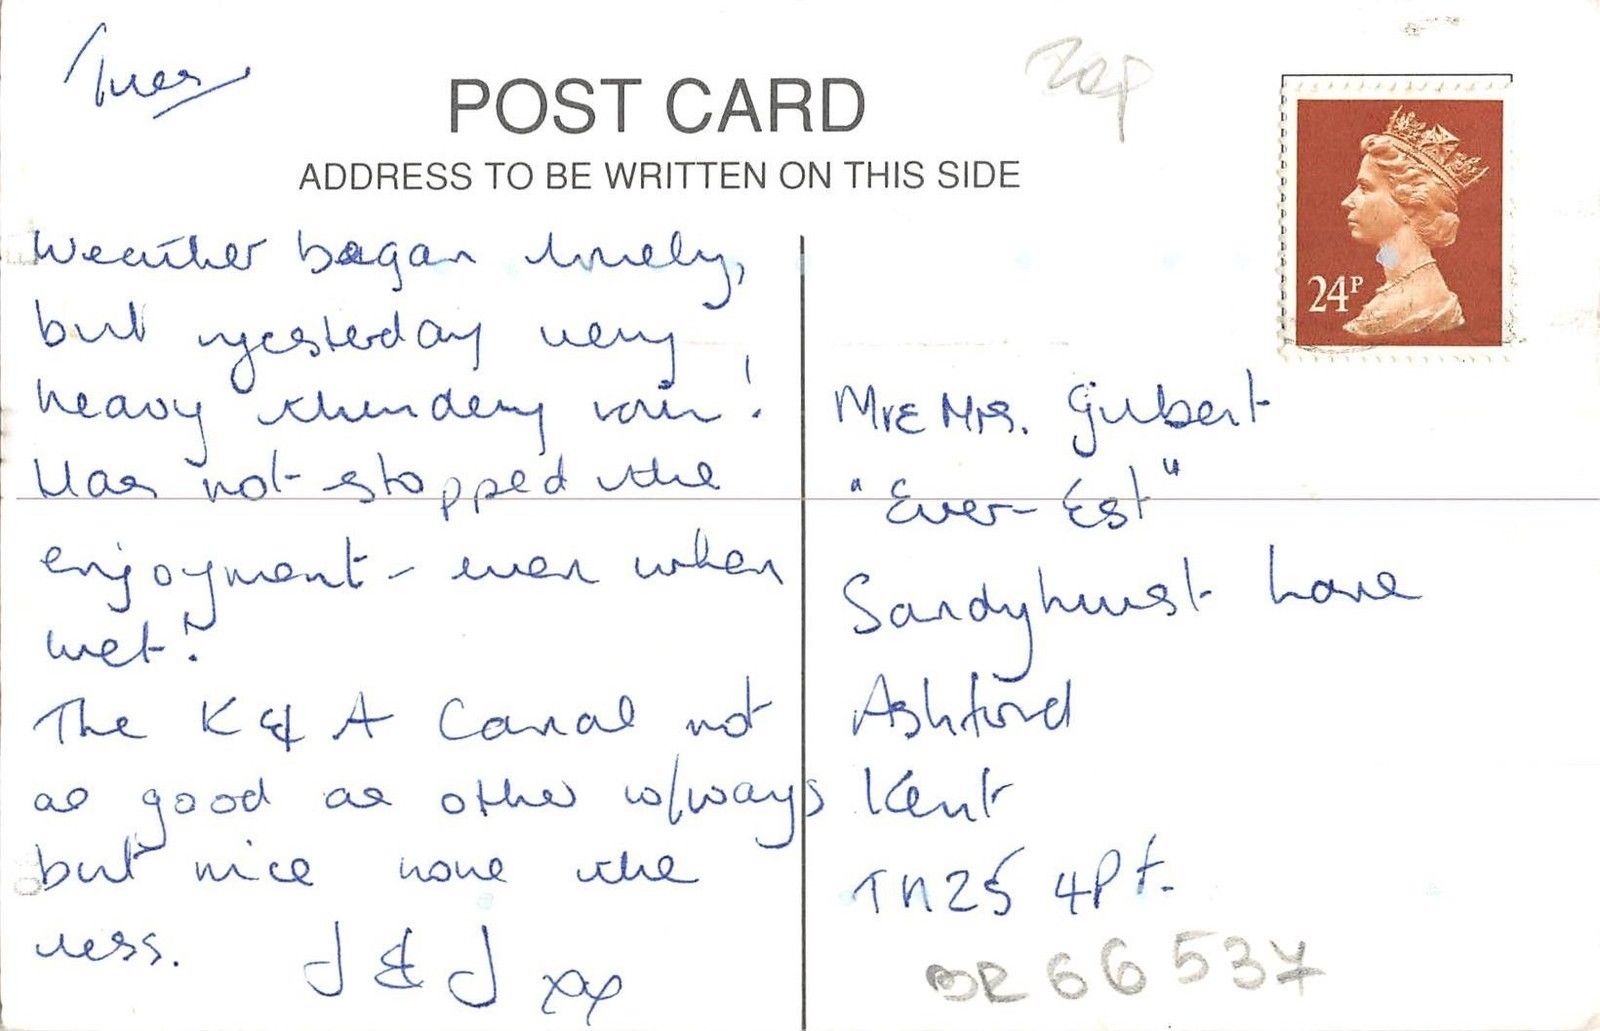 Tues
POST CARD
ADDRESS TO BE WRITTEN ON THIS SIDE
20p
24P
Weather began lovely,
but yesterday very
heavy thundery rain!
Has not stopped the
enjoyment - even when
wet!
The K & A Canal not
as good as other w/ways
but nice none the
less.
J & J xx
Mr & Mrs. Gilbert
"Ever-Est"
Sandyhurst Lane
Ashford
Kent
TN25 4PT.
66537